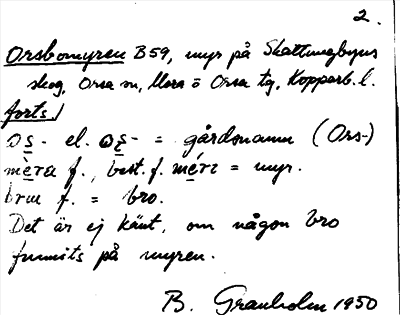 2.
Orsbomyren B59, myr på Skattungbyns
skog, Orsa sn, Mora ö Orsa tg, Kopparb. l.
forts.)
os- el. ωs- = gårdsnamn (Ors-)
mèra f., best. f. méri = myr.
brω f. = bro.
Det är ej känt, om någon bro
funnits på myren.
B. Granholm 1950